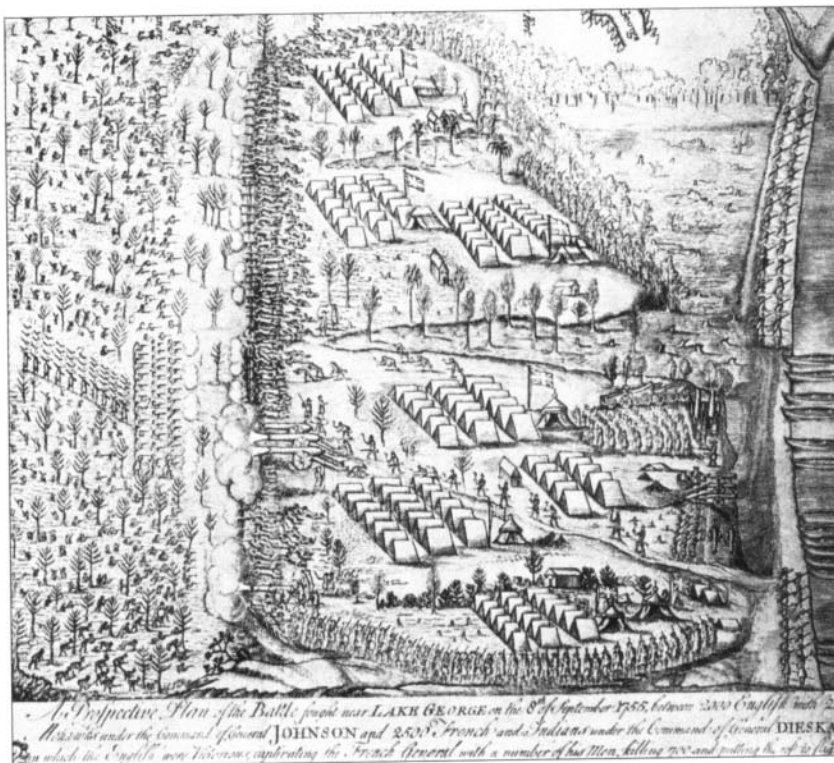 A Prospective Plan of the Battle fought near LAKE GEORGE on the 8th of September 1755, between 2000 English with
Mohawks under the Command of General JOHNSON and 2500 French and Indians under the Command of General DIESK
in which the English were Victorious, captivating the French General with a number of his Men, killing 700 and putting the rest to